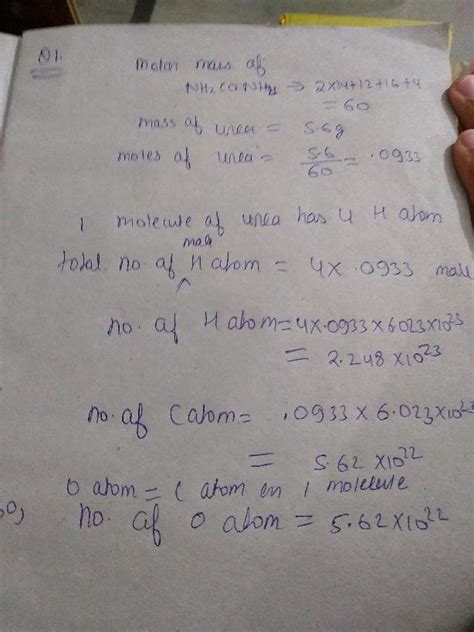 N1.
Molar mass of
NH2CONH2 → 2×14+12+16+4
= 60
mass of urea = 5.6g
moles of urea = 5.6/60 = .0933
1 molecule of urea has 4 H atom
mole
total no. of ^ H atom = 4× .0933 mole
no. of H atom = 4×.0933×6023×10^23
= 2.248×10^23
no. of C atom = .0933 × 6.023×10^23
= 5.62×10^22
O atom = C atom en 1 molecule
so, no. of O atom = 5.62×10^22